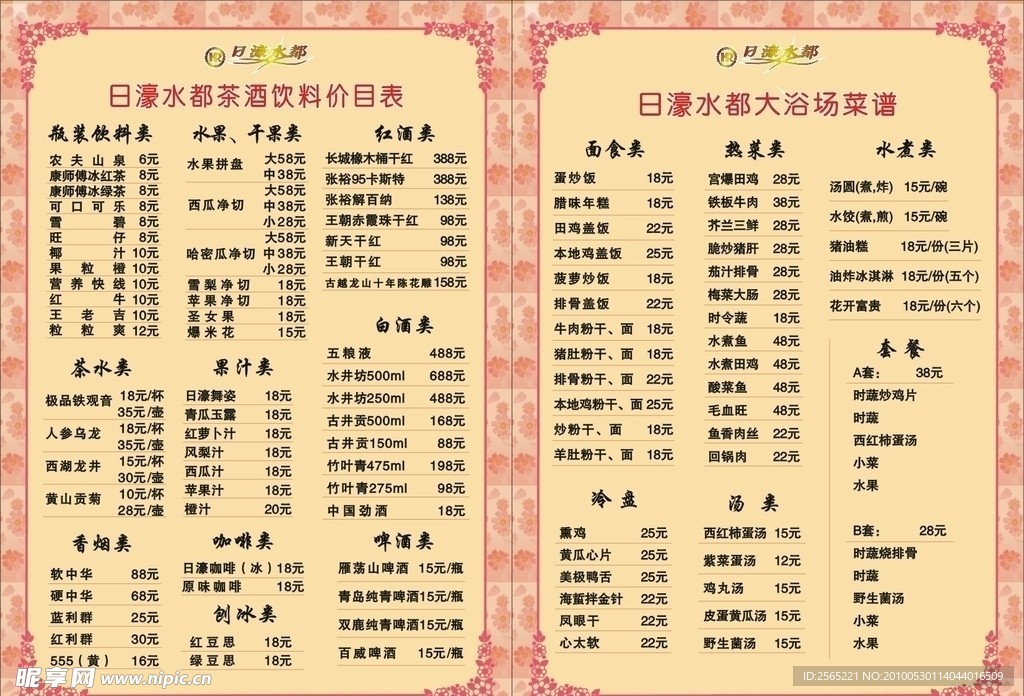 日濠水都
日濠水都茶酒饮料价目表
瓶装饮料类
农夫山泉 6元
康师傅冰红茶 8元
康师傅冰绿茶 8元
可口可乐 8元
雪碧 8元
旺仔 8元
椰汁 10元
果粒橙 10元
营养快线 10元
红牛 10元
王老吉 10元
粒粒爽 12元
茶水类
极品铁观音 18元/杯
35元/壶
人参乌龙 18元/杯
35元/壶
西湖龙井 15元/杯
30元/壶
黄山贡菊 10元/杯
28元/壶
香烟类
软中华 88元
硬中华 68元
蓝利群 25元
红利群 30元
555（黄） 16元
水果、干果类
水果拼盘 大58元
中38元
西瓜净切 大58元
中38元
小28元
哈密瓜净切 大58元
中38元
小28元
雪梨净切 18元
苹果净切 18元
圣女果 18元
爆米花 15元
果汁类
日濠舞姿 18元
青瓜玉露 18元
红萝卜汁 18元
凤梨汁 18元
西瓜汁 18元
苹果汁 18元
橙汁 20元
咖啡类
日濠咖啡（冰）18元
原味咖啡 18元
刨冰类
红豆思 18元
绿豆思 18元
红酒类
长城橡木桶干红 388元
张裕95卡斯特 388元
张裕解百纳 138元
王朝赤霞珠干红 98元
新天干红 98元
王朝干红 98元
古越龙山十年陈花雕 158元
白酒类
五粮液 488元
水井坊500ml 688元
水井坊250ml 488元
古井贡500ml 168元
古井贡150ml 88元
竹叶青475ml 198元
竹叶青275ml 98元
中国劲酒 18元
啤酒类
雁荡山啤酒 15元/瓶
青岛纯青啤酒15元/瓶
双鹿纯青啤酒15元/瓶
百威啤酒 15元/瓶
日濠水都
日濠水都大浴场菜谱
面食类
蛋炒饭 18元
腊味年糕 18元
田鸡盖饭 22元
本地鸡盖饭 25元
菠萝炒饭 18元
排骨盖饭 22元
牛肉粉干、面 18元
猪肚粉干、面 18元
排骨粉干、面 22元
本地鸡粉干、面 25元
炒粉干、面 18元
羊肚粉干、面 18元
冷盘
熏鸡 25元
黄瓜心片 25元
美极鸭舌 25元
海蜇拌金针 22元
凤眼干 22元
心太软 22元
热菜类
宫爆田鸡 28元
铁板牛肉 38元
芥兰三鲜 28元
脆炒猪肝 28元
茄汁排骨 28元
梅菜大肠 28元
时令蔬 18元
水煮鱼 48元
水煮田鸡 48元
酸菜鱼 48元
毛血旺 48元
鱼香肉丝 22元
回锅肉 22元
汤类
西红柿蛋汤 15元
紫菜蛋汤 12元
鸡丸汤 15元
皮蛋黄瓜汤 15元
野生菌汤 15元
水煮类
汤圆(煮,炸) 15元/碗
水饺(煮,煎) 15元/碗
猪油糕 18元/份(三片)
油炸冰淇淋 18元/份(五个)
花开富贵 18元/份(六个)
套餐
A套： 38元
时蔬炒鸡片
时蔬
西红柿蛋汤
小菜
水果
B套： 28元
时蔬烧排骨
时蔬
野生菌汤
小菜
水果
昵享网 www.nipic.cn
ID:2565221 NO:20100530114044016509